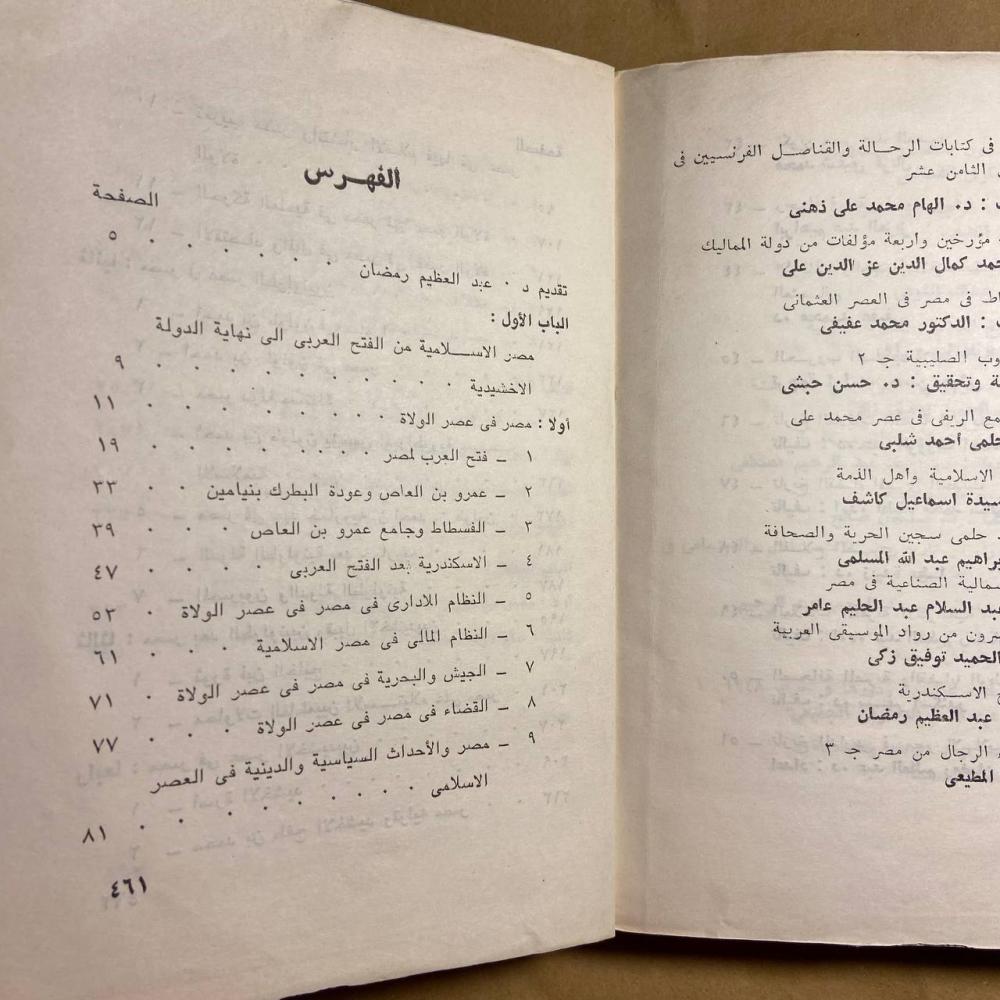 فى كتابات الرحالة والقناصل الفرنسيين فى
الثامن عشر
: د. الهام محمد على ذهنى
مؤرخين واربعة مؤلفات من دولة المماليك
كمال الدين عز الدين على
فى مصر فى العصر العثمانى
: الدكتور محمد عفيفى
الصليبية جـ ٢
وتحقيق : د. حسن حبشى
الريفى فى عصر محمد على
حلمى أحمد شلبى
الاسلامية وأهل الذمة
سيدة اسماعيل كاشف
حلمى سجين الحرية والصحافة
عبد الله المسلمى
الصناعية فى مصر
عبد السلام عبد الحليم عامر
من رواد الموسيقى العربية
توفيق زكى
الاسـكندرية
عبد العظيم رمضان
الرجال من مصر جـ ٣
المطيعى
الفهرس
الصفحة
تقديم د . عبد العظيم رمضان . . . . . . . ٥
الباب الأول :
مصر الاسـلامية من الفتح العربى الى نهاية الدولة
الاخشيدية . . . . . . . . . ٩
أولا : مصر فى عصر الولاة . . . . . . . . ١١
١ ــ فتح العرب لمصر . . . . . . . . ١٩
٢ ــ عمرو بن العاص وعودة البطرك بنيامين . . ٣٣
٣ ــ الفسطاط وجامع عمرو بن العاص . . . ٣٩
٤ ــ الاسكندرية بعد الفتح العربى . . . . ٤٧
٥ ــ النظام الادارى فى مصر فى عصر الولاة . . ٥٣
٦ ــ النظام المالى فى مصر الاسلامية . . . . ٦١
٧ ــ الجيش والبحرية فى مصر فى عصر الولاة . ٧١
٨ ــ القضاء فى مصر فى عصر الولاة . . . ٧٧
٩ ــ مصر والأحداث السياسية والدينية فى العصر
الاسلامى . . . . . . . . . ٨١
٤٦١